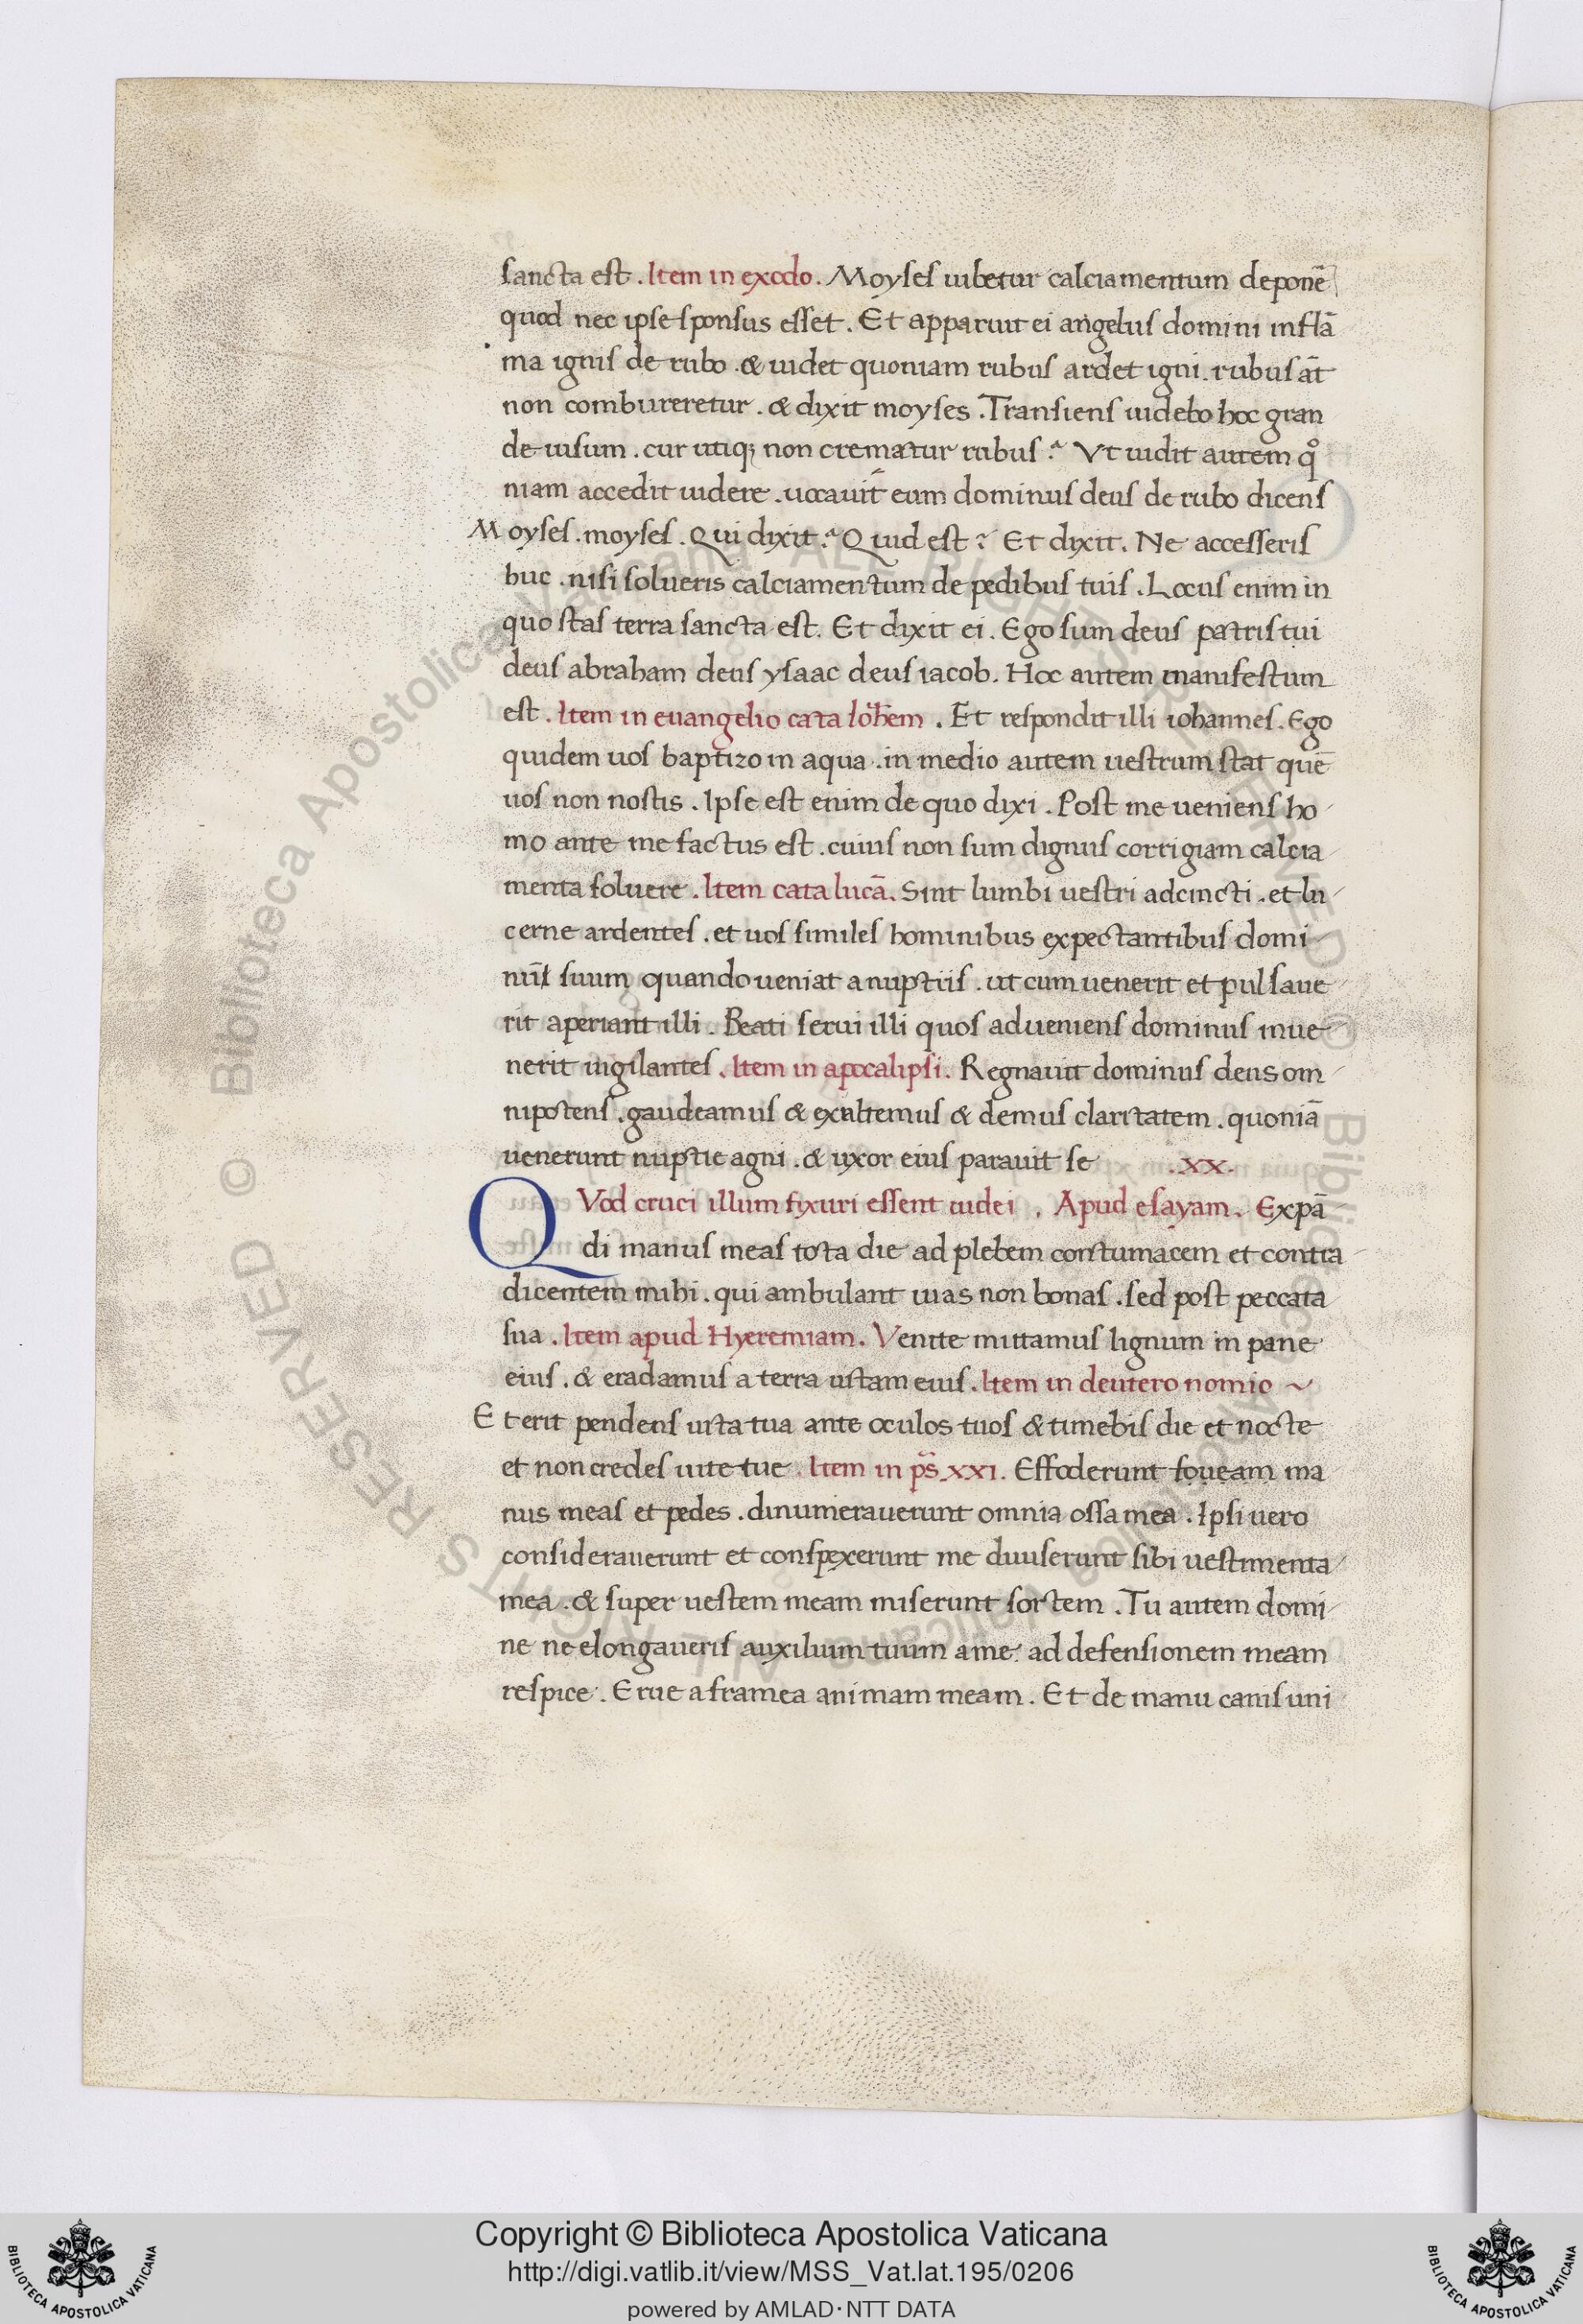 sancta est . Item in exodo . Moyses iubetur calciamentum deponē
quod nec ipse sponsus esset . Et apparuit ei angelus domini in flā
ma ignis de rubo . & uidet quoniam rubus ardet igni . rubus āt
non combureretur . & dixit moyses . Transiens uidebo hoc gran
de uisum . cur utiq; non crematur rubus ? Vt uidit autem qͦ
niam accedit uidere . uocauit eum dominus deus de rubo dicens
Moyses . moyses . Qui dixit ? Quid est ? Et dixit . Ne accesseris
huc . nisi solueris calciamentum de pedibus tuis . Locus enim in
quo stas terra sancta est . Et dixit ei . Ego sum deus patris tui
deus abraham deus ysaac deus iacob . Hoc autem manifestum
est . Item in euangelio cata Ioħem . Et respondit illi iohannes . Ego
quidem uos baptizo in aqua . in medio autem uestrum stat quē
uos non nostis . Ipse est enim de quo dixi . Post me ueniens ho
mo ante me factus est . cuius non sum dignus corrigiam calcia
menta soluere . Item cata lucā . Sint lumbi uestri adcincti . et lu
cerne ardentes . et uos similes hominibus expectantibus domi
suum quando ueniat a nuptiis . ut cum uenerit et pulsaue
rit aperiant illi . Beati serui illi quos adueniens dominus inue
nerit uigilantes . Item in apocalipsi . Regnauit dominus deus om
nipotens . gaudeamus & exultemus & demus claritatem . quoniā
uenerunt nuptie agni . & uxor eius parauit se .XX.
QVod cruci illum fixuri essent iudei . Apud esayam . Expā
di manus meas tota die ad plebem contumacem et contra
dicentem mihi . qui ambulant uias non bonas . sed post peccata
sua . Item apud Hyeremiam . Venite mittamus lignum in pane
eius . & eradamus a terra uitam eius . Item in deuteronomio ~
Et erit pendens uita tua ante oculos tuos & timebis die et nocte
et non credes uite tue . Item in ps̄ .XXI. Effoderunt foueam ma
nus meas et pedes . dinumerauerunt omnia ossa mea . Ipsi uero
considerauerunt et conspexerunt me diuiserunt sibi uestimenta
mea . & super uestem meam miserunt sortem . Tu autem domi
ne ne elongaueris auxilium tuum a me . ad defensionem meam
respice . Erue a framea animam meam . Et de manu canis uni
© Biblioteca Apostolica Vaticana ALL RIGHTS RESERVED © Biblioteca Apostolica Vaticana ALL RIGHTS RESERVED
Copyright © Biblioteca Apostolica Vaticana
http://digi.vatlib.it/view/MSS_Vat.lat.195/0206
powered by AMLAD·NTT DATA
BIBLIOTECA APOSTOLICA VATICANA
BIBLIOTECA APOSTOLICA VATICANA